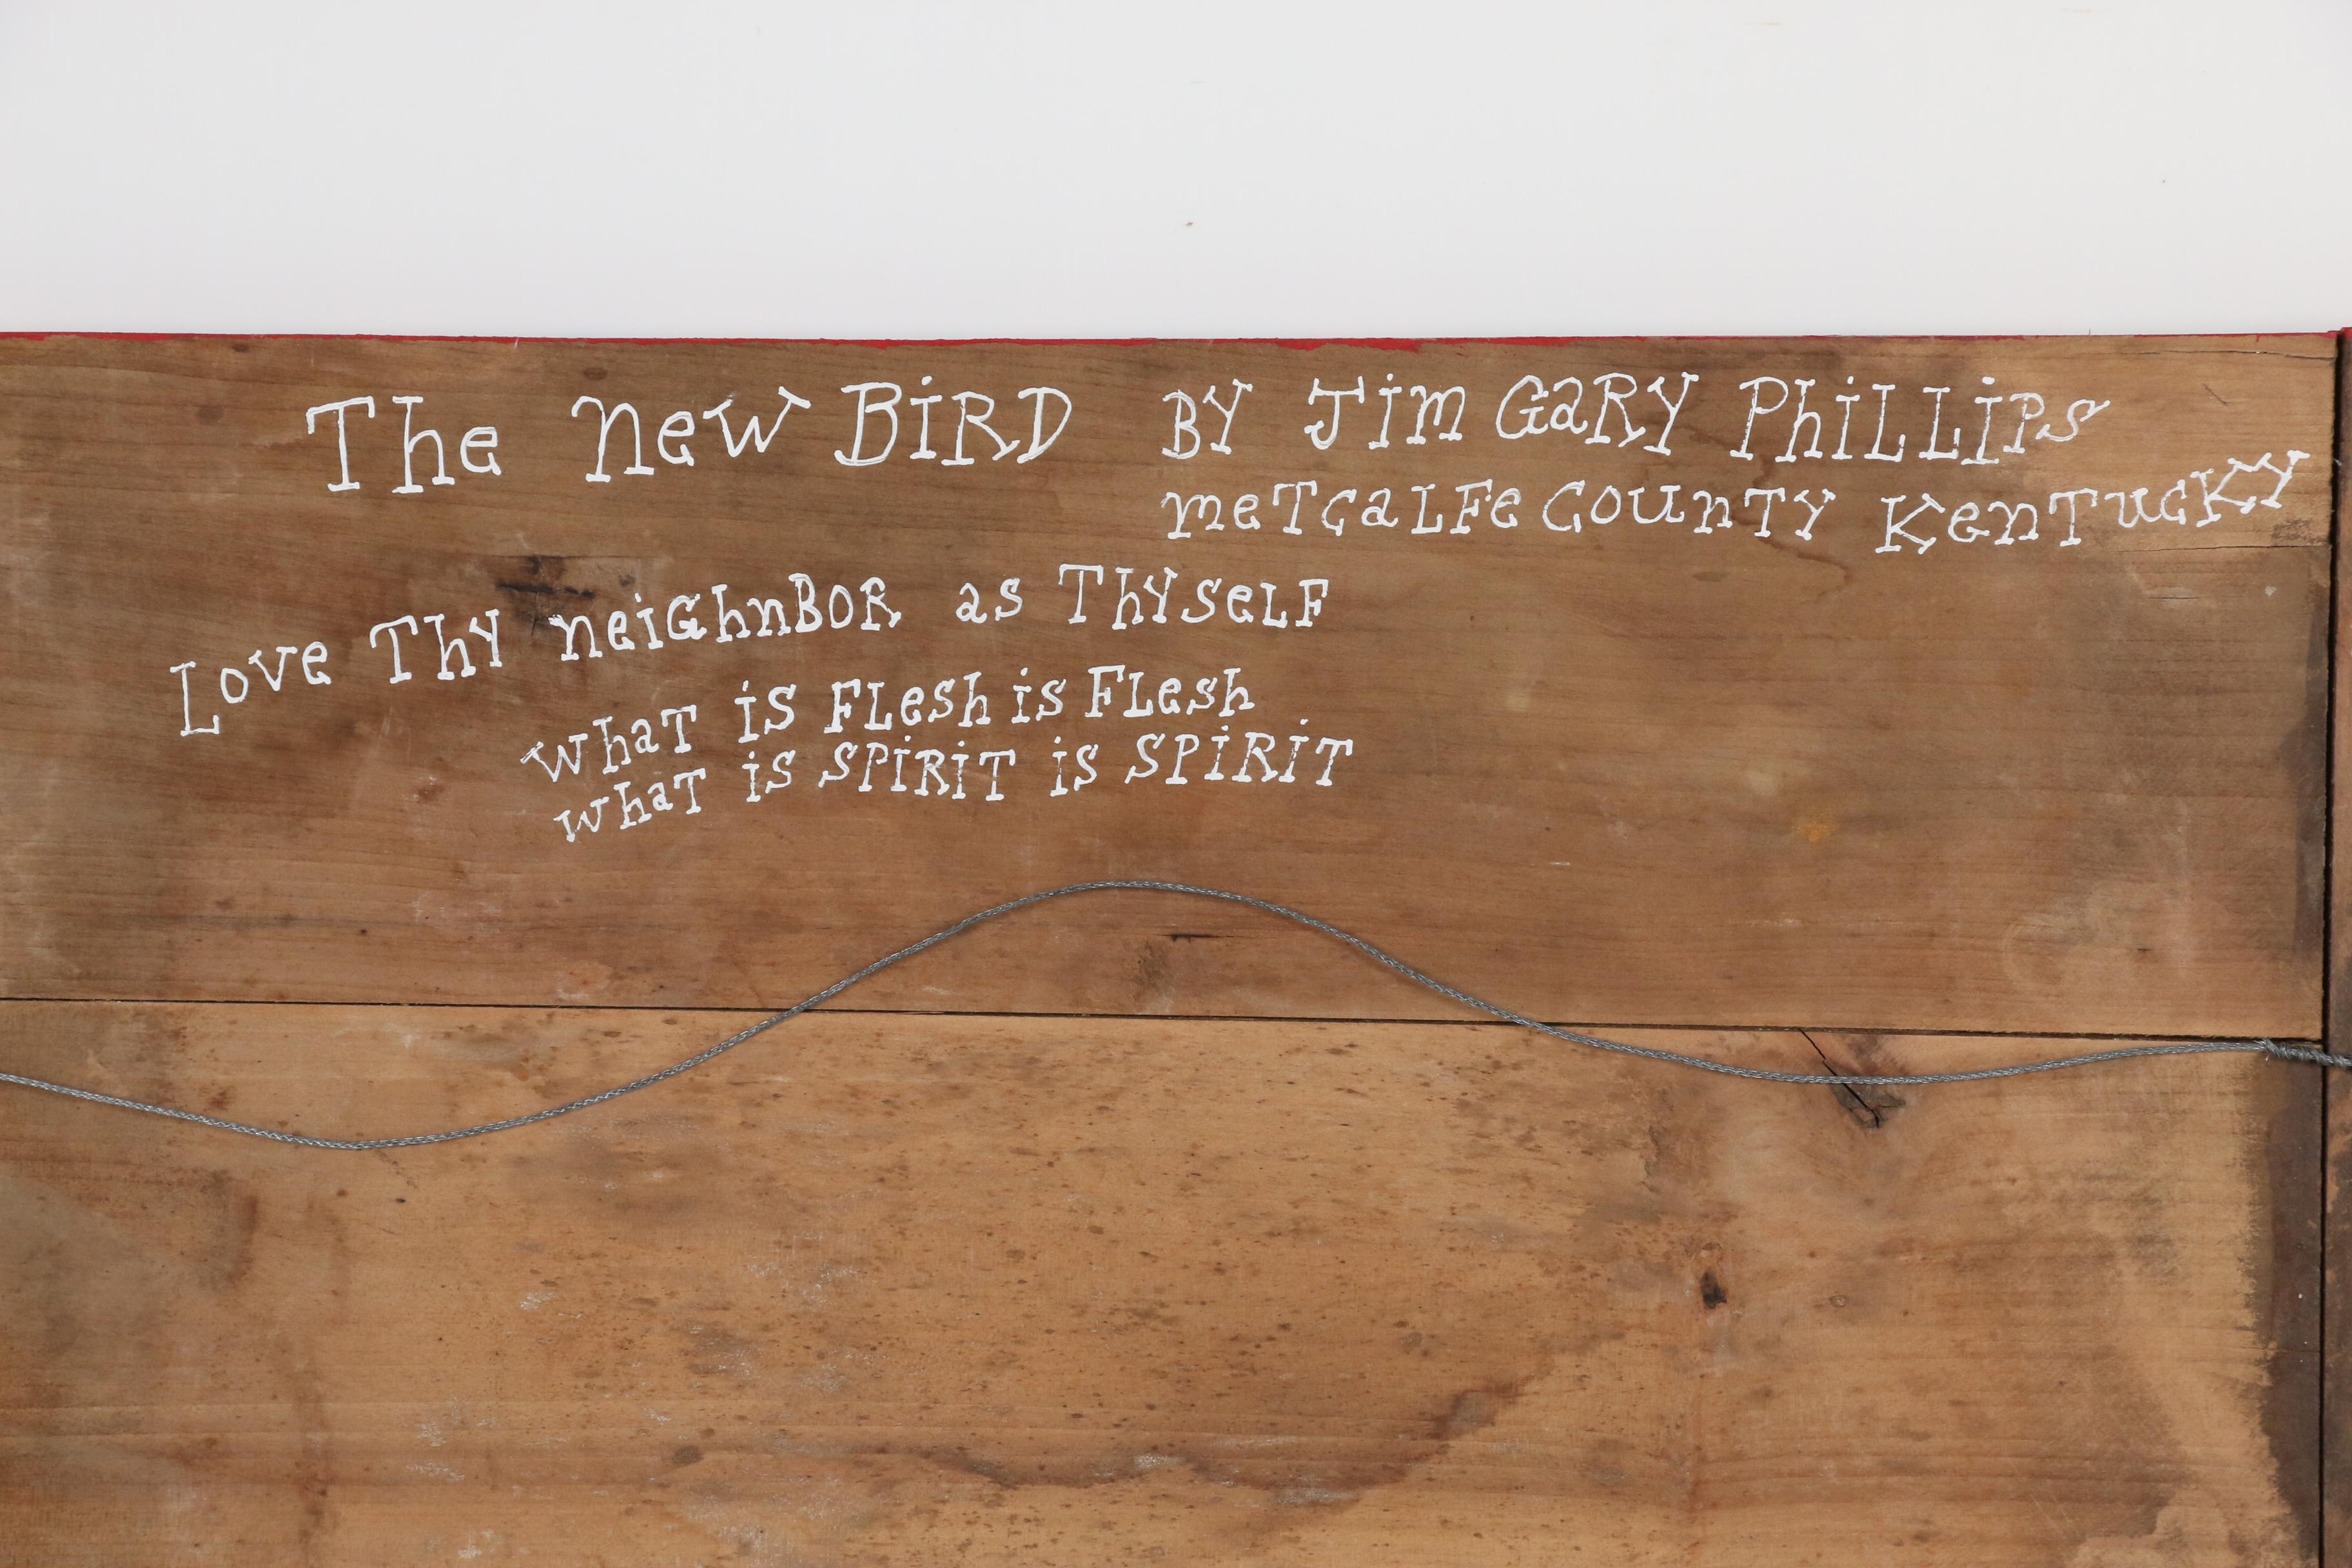 The new BiRD BY Jim GaRY PhiLLiPs
meTcaLFe COUnTY KenTucKY
Love ThY neiGhnBOR as ThYseLF
whaT is FLesh is FLesh
whaT is SPiRiT is SPiRiT